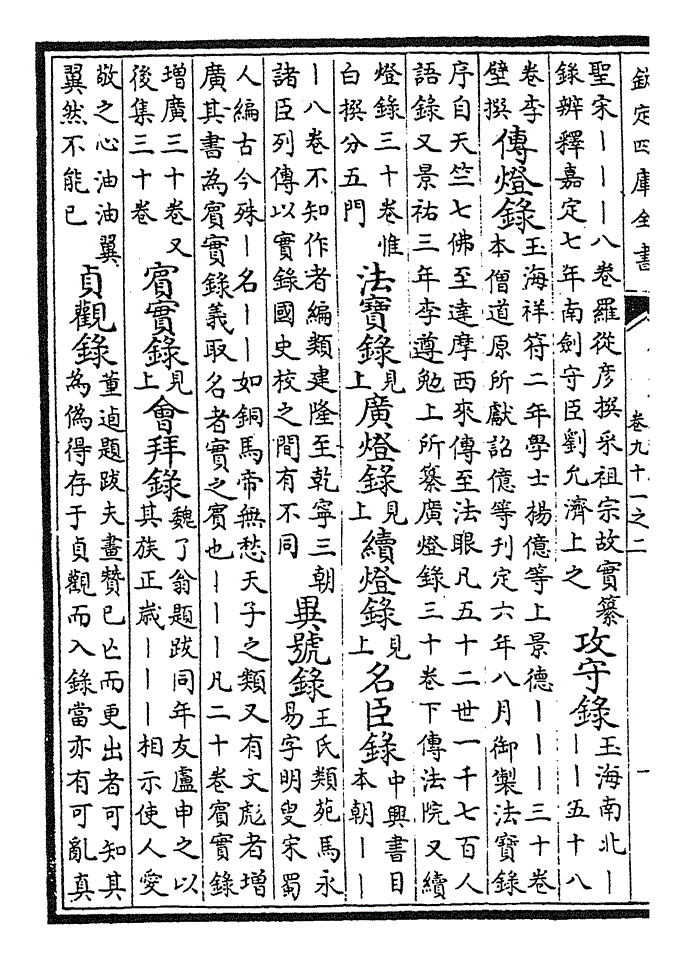 欽定四庫全書
卷九十一之二
一
聖宋丨丨丨八卷羅從彦撰采祖宗故實纂
錄辨釋嘉定七年南劍守臣劉允濟上之
攻守錄
玉海南北丨
丨丨五十八
卷李
壁撰
傳燈錄
玉海祥符二年學士楊億等上景德丨丨丨三十卷
本僧道原所獻詔億等刊定六年八月御製法寶錄
序自天竺七佛至達摩西來傳至法眼凡五十二世一千七百人
語錄又景祐三年李遵勉上所纂廣燈錄三十卷下傳法院又續
燈錄三十卷惟
白撰分五門
法寶錄
見
上
廣燈錄
見
上
續燈錄
見
上
名臣錄
中興書目
本朝丨丨
丨八卷不知作者編類建隆至乾寧三朝
諸臣列傳以實錄國史校之間有不同
異號錄
王氏類苑馬永
易字明叟宋蜀
人編古今殊丨名丨丨如銅馬帝無愁天子之類又有文彪者增
廣其書為賓實錄義取名者實之賓也丨丨丨凡二十卷賓實錄
增廣三十卷又
後集三十卷
賓實錄
見
上
會拜錄
魏了翁題跋同年友盧申之以
其族正歲丨丨丨相示使人愛
敬之心油油翼
翼然不能已
貞觀錄
董逌題跋夫畫贊已亡而更出者可知其
為偽得存于貞觀而入錄當亦有可亂真